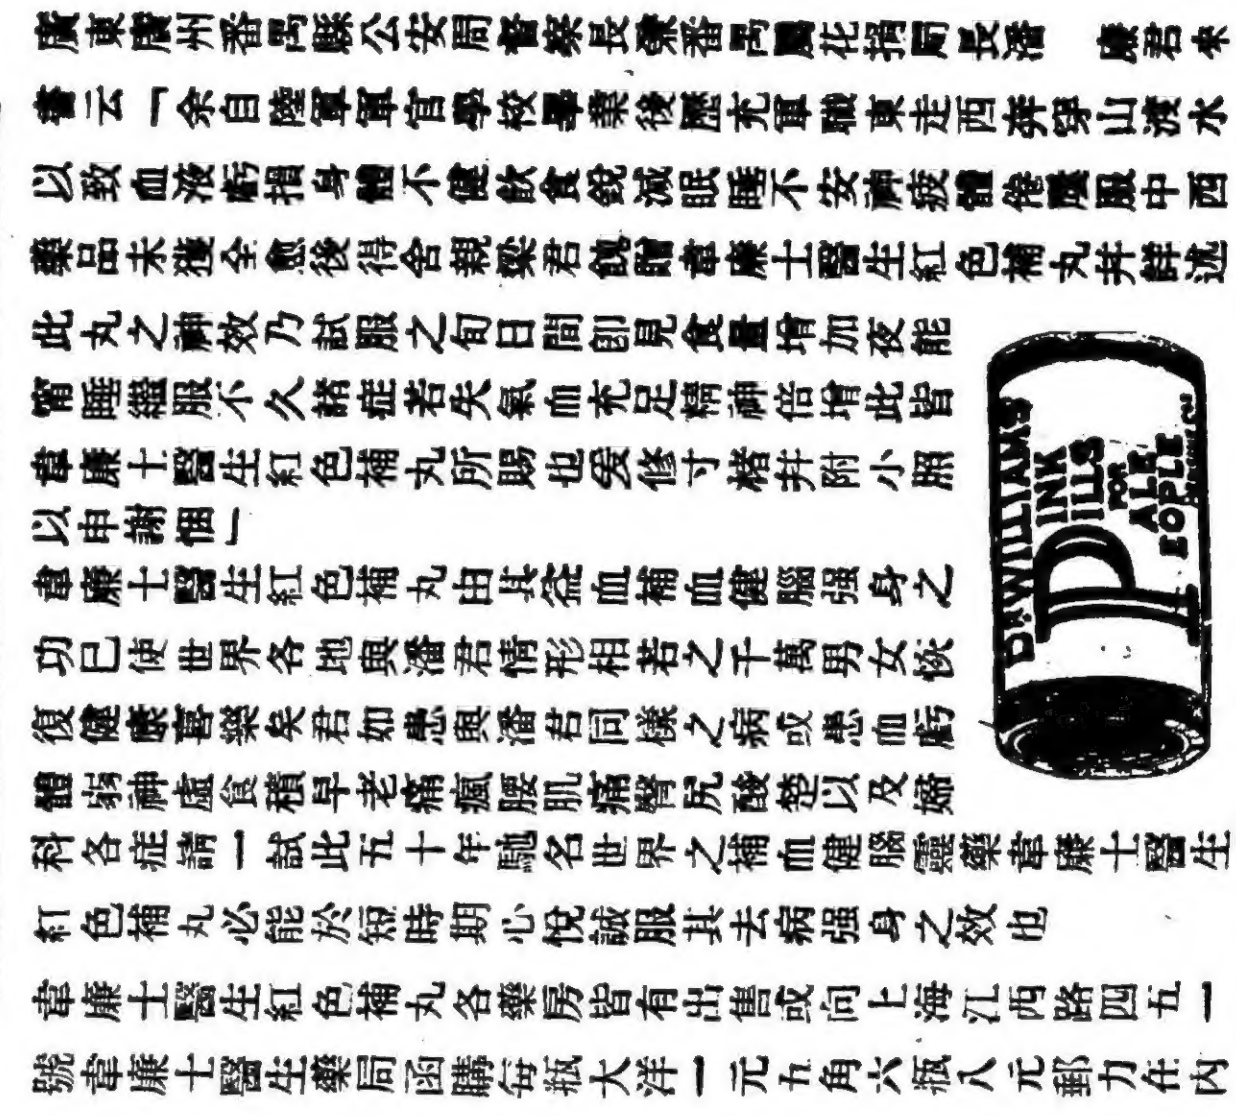 廣東廣州番禺縣公安局督察長兼番禺園花捐局長潘 廉君來
書云「余自陸軍軍官學校畢業後歷充軍職東走西奔穿山渡水
以致血液虧損身體不健飲食銳減眠睡不安神疲體倦屢服中西
藥品未獲全愈後得舍親梁君餽贈韋廉士醫生紅色補丸并詳述
此丸之神效乃試服之旬日間卽見食量增加夜能
甯睡繼服不久諸症若失氣血充足精神倍增此皆
韋廉士醫生紅色補丸所賜也爰修寸楮并附小照
以申謝悃」
韋廉士醫生紅色補丸由其益血補血健腦强身之
功已使世界各地與潘君情形相若之千萬男女恢
復健康喜樂矣君如患與潘君同樣之病或患血虧
體弱神虛食積早老痛瘋腰肌痛臀尻酸楚以及婦
科各症請一試此五十年馳名世界之補血健腦靈藥韋廉士醫生
紅色補丸必能於短時期心悅誠服其去病强身之效也
韋廉士醫生紅色補丸各藥房皆有出售或向上海江西路四五一
號韋廉士醫生藥局函購每瓶大洋一元五角六瓶八元郵力在內
DR WILLIAMS
PINK
PILLS
FOR
PALE
PEOPLE